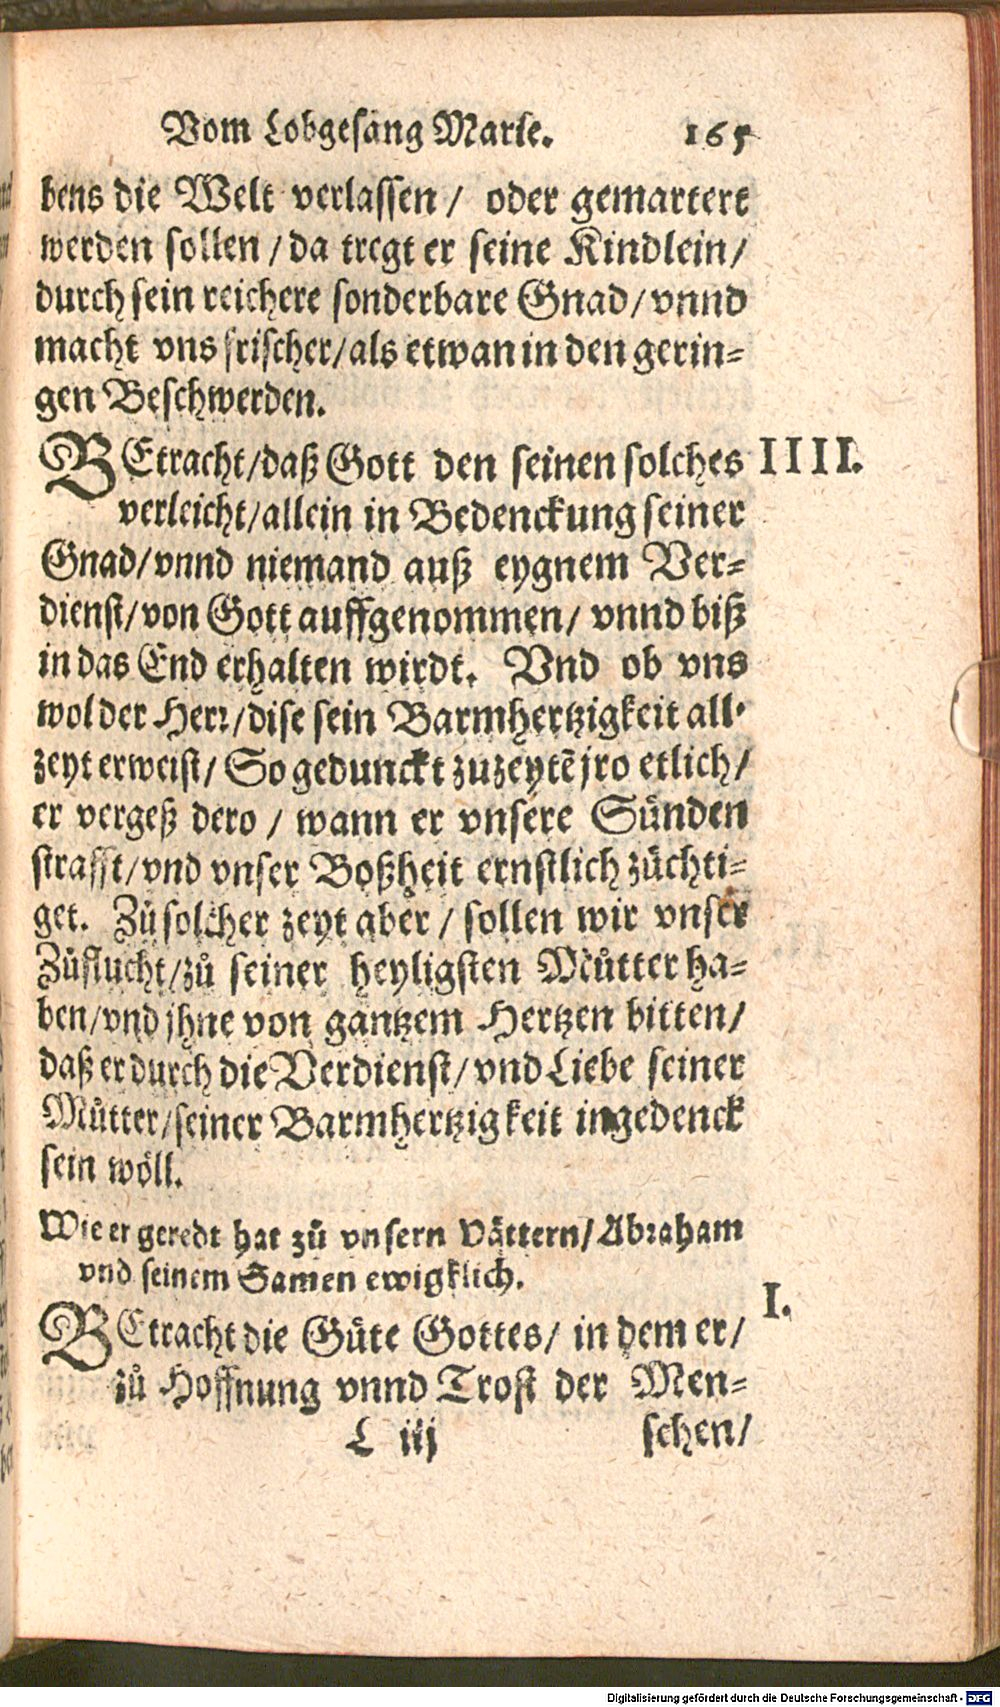 Vom Lobgesang Marie. 165
bens die Welt verlassen / oder gemartert
werden sollen / da tregt er seine Kindlein /
durch sein reichere sonderbare Gnad / vnnd
macht vns frischer / als etwan in den gerin=
gen Beschwerden.
BEtracht / daß Gott den seinen solches IIII.
verleicht / allein in Bedenckung seiner
Gnad / vnnd niemand auß eygnem Ver=
dienst / von Gott auffgenommen / vnnd biß
in das End erhalten wirdt. Vnd ob vns
wol der Herr / dise sein Barmhertzigkeit all=
zeyt erweist / So gedunckt zuzeytẽ jro etlich /
er vergeß dero / wann er vnsere Sünden
strafft / vnd vnser Boßheit ernstlich züchti=
get. Zů solcher zeyt aber / sollen wir vnser
Zůflucht / zů seiner heyligsten Můtter ha=
ben / vnd jhne von gantzem Hertzen bitten /
daß er durch die Verdienst / vnd Liebe seiner
Můtter / seiner Barmhertzigkeit ingedenck
sein wöll.
Wie er geredt hat zů vnsern Vättern / Abraham
vnd seinem Samen ewigklich.
I.
BEtracht die Güte Gottes / in dem er /
zů Hoffnung vnnd Trost der Men=
L iij schen /
Digitalisierung gefördert durch die Deutsche Forschungsgemeinschaft - DFG